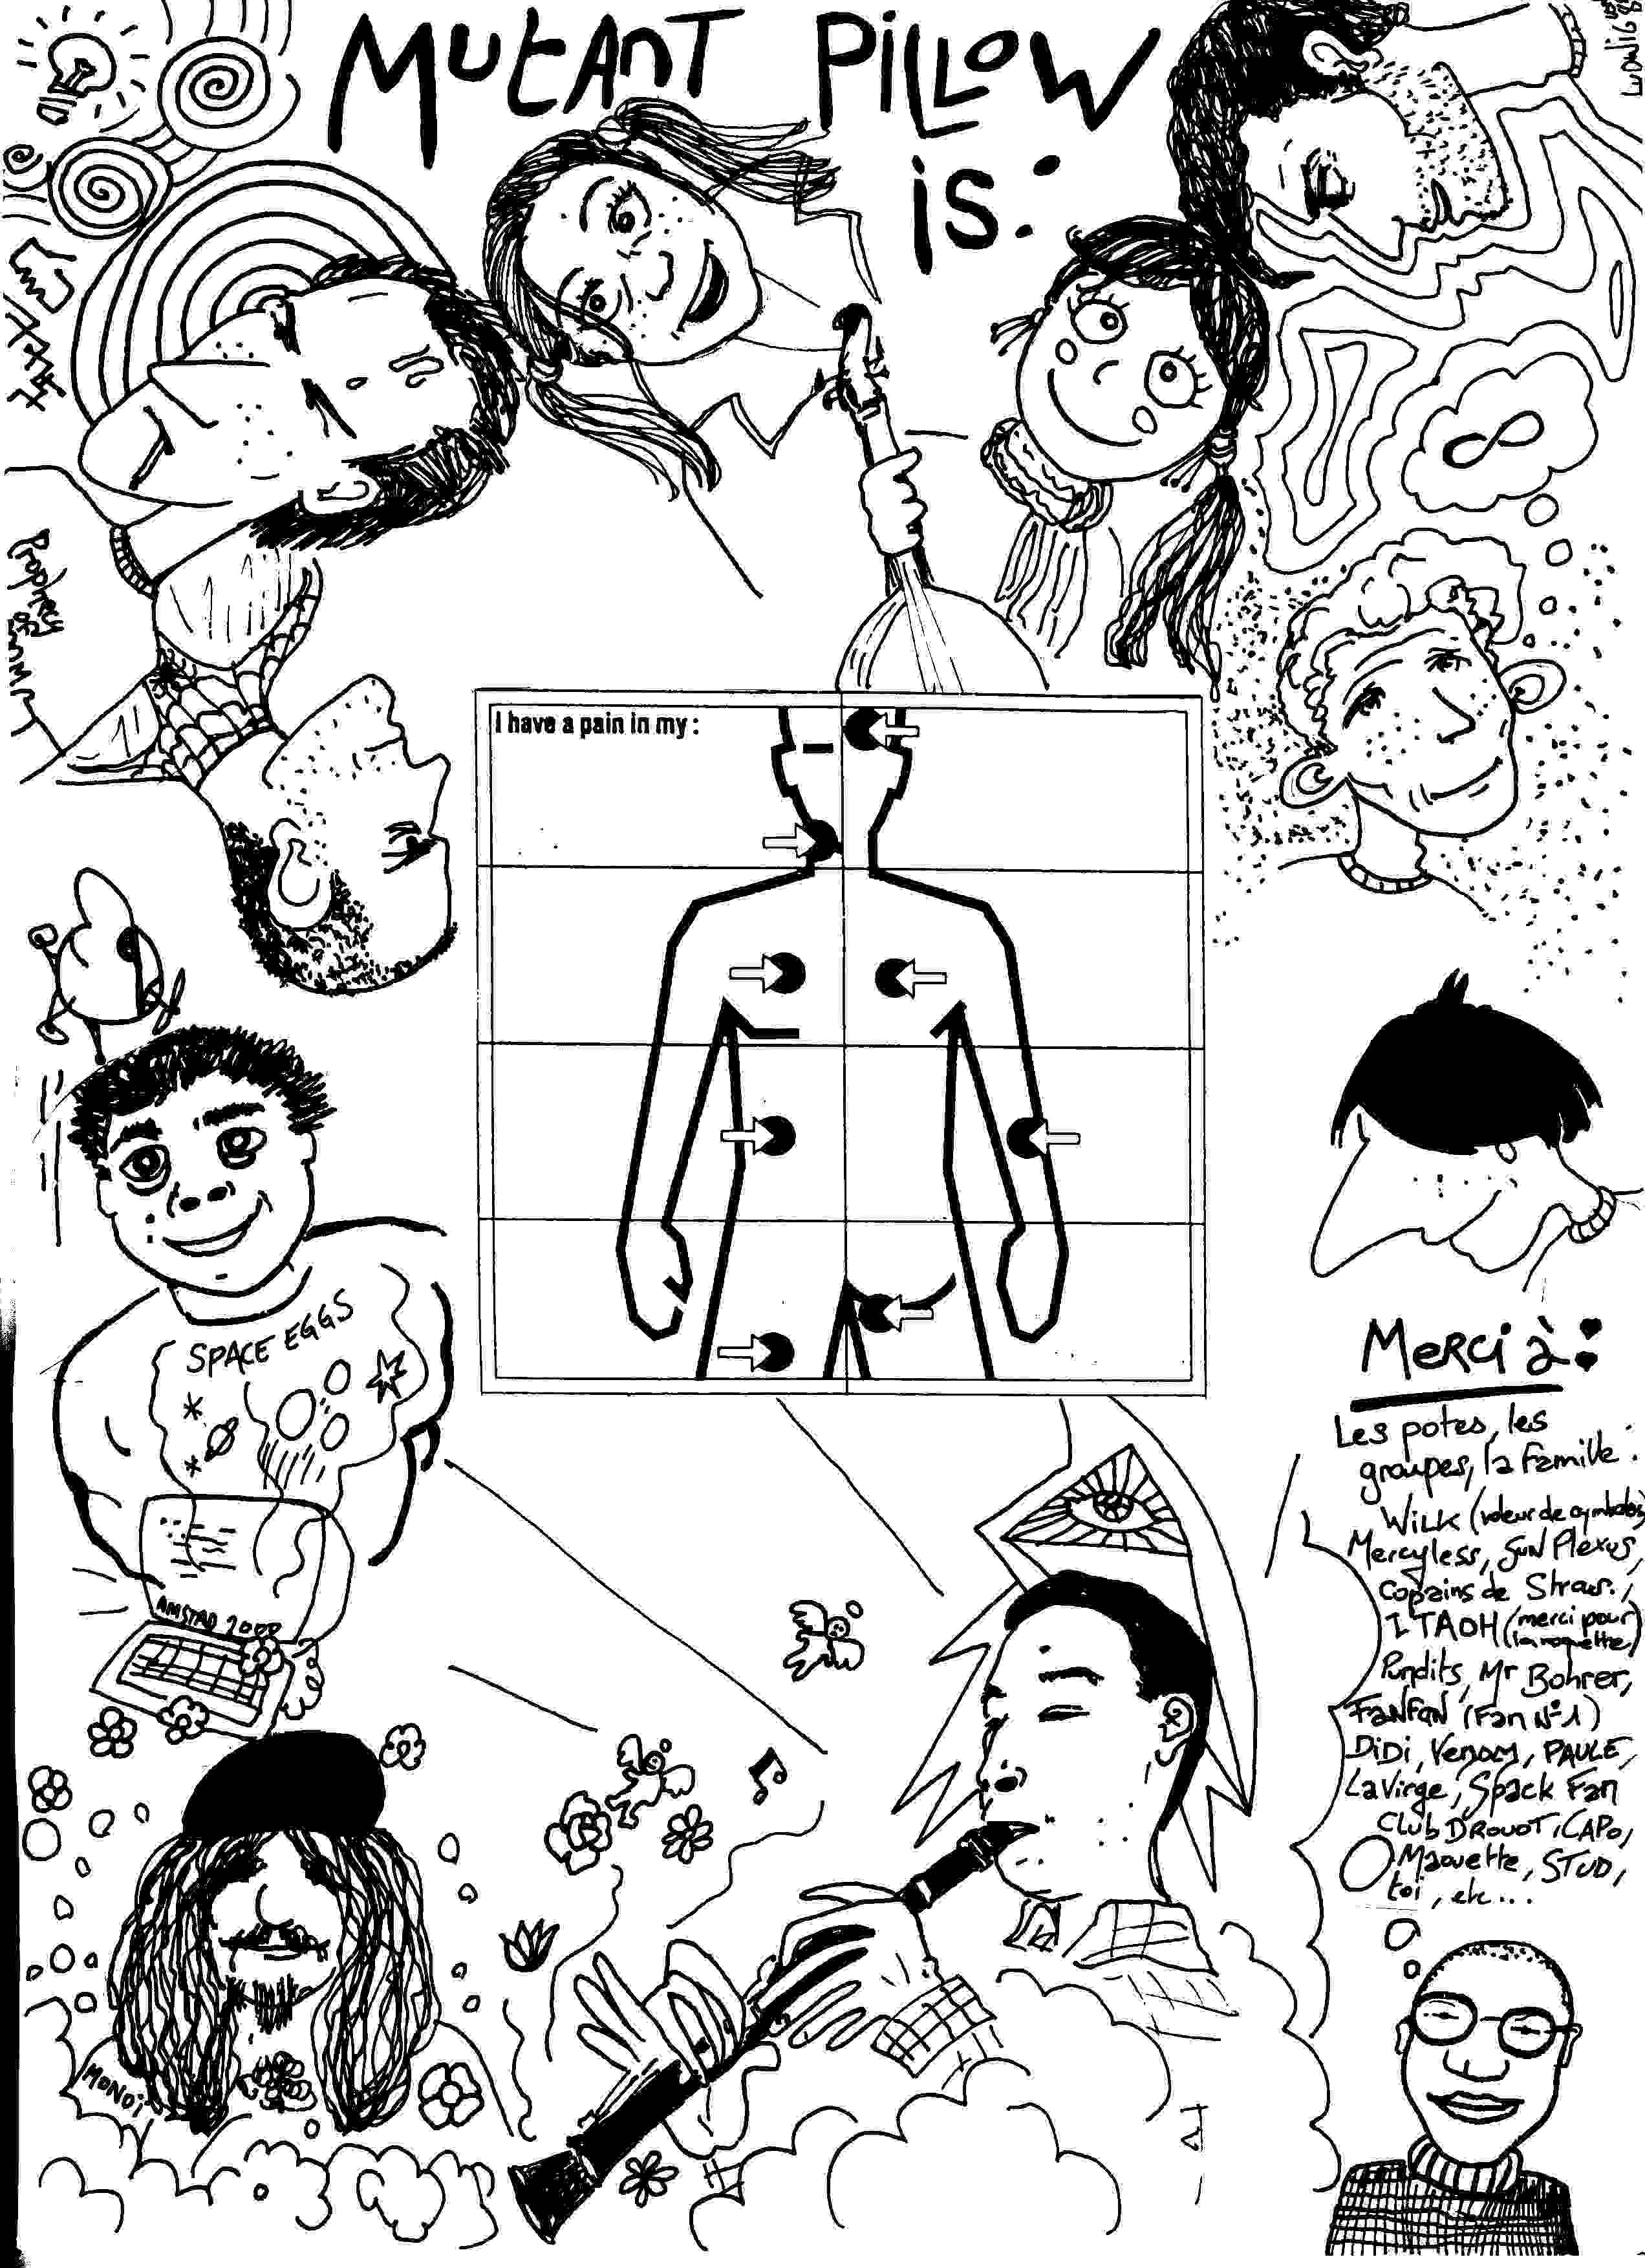 MUtAnT PiLLoW
is:
LUDWIG
Property
of
I have a pain in my :
SPACE EGGS
AMSTAD 2000
MONOÏ
MeRCi à :
Les potes, les
groupes, la famille :
WiLK (voleur de cymbales)
Mercyless, SUN Plexus,
Copains de Stras.,
ITAOH (merci pour
la roquette)
Pundits, Mr Bohrer,
FANFAN (Fan N°1)
DiDi, Venom, PAULE,
La Virge, Spack Fan
Club DROUOT, CAPO,
Maouette, STUD,
toi, etc...